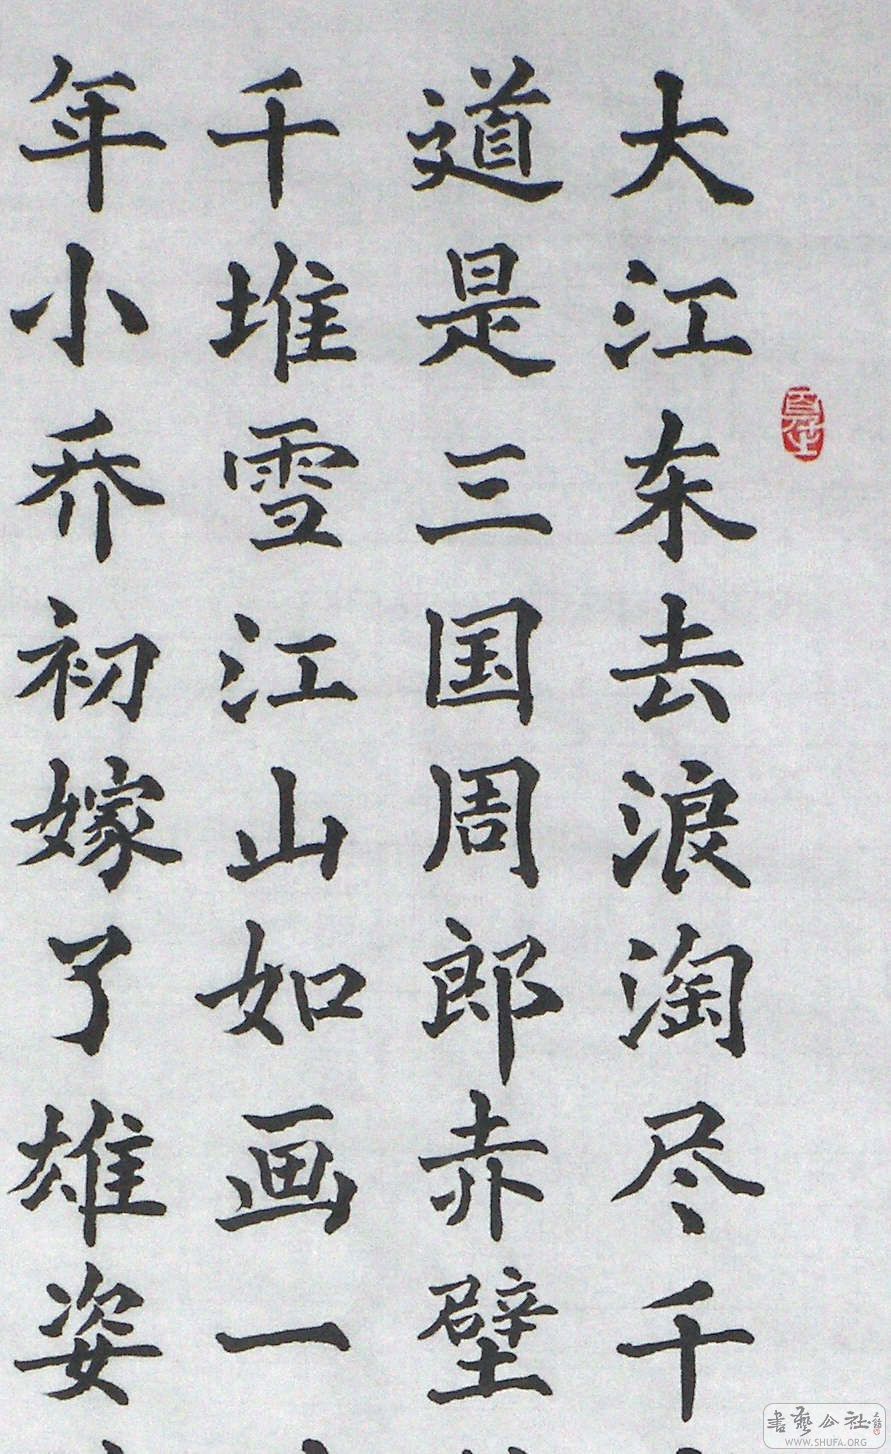 大江东去浪淘尽千
道是三国周郎赤壁
千堆雪江山如画一
年小乔初嫁了雄姿
書藝公社
WWW.SHUFA.ORG